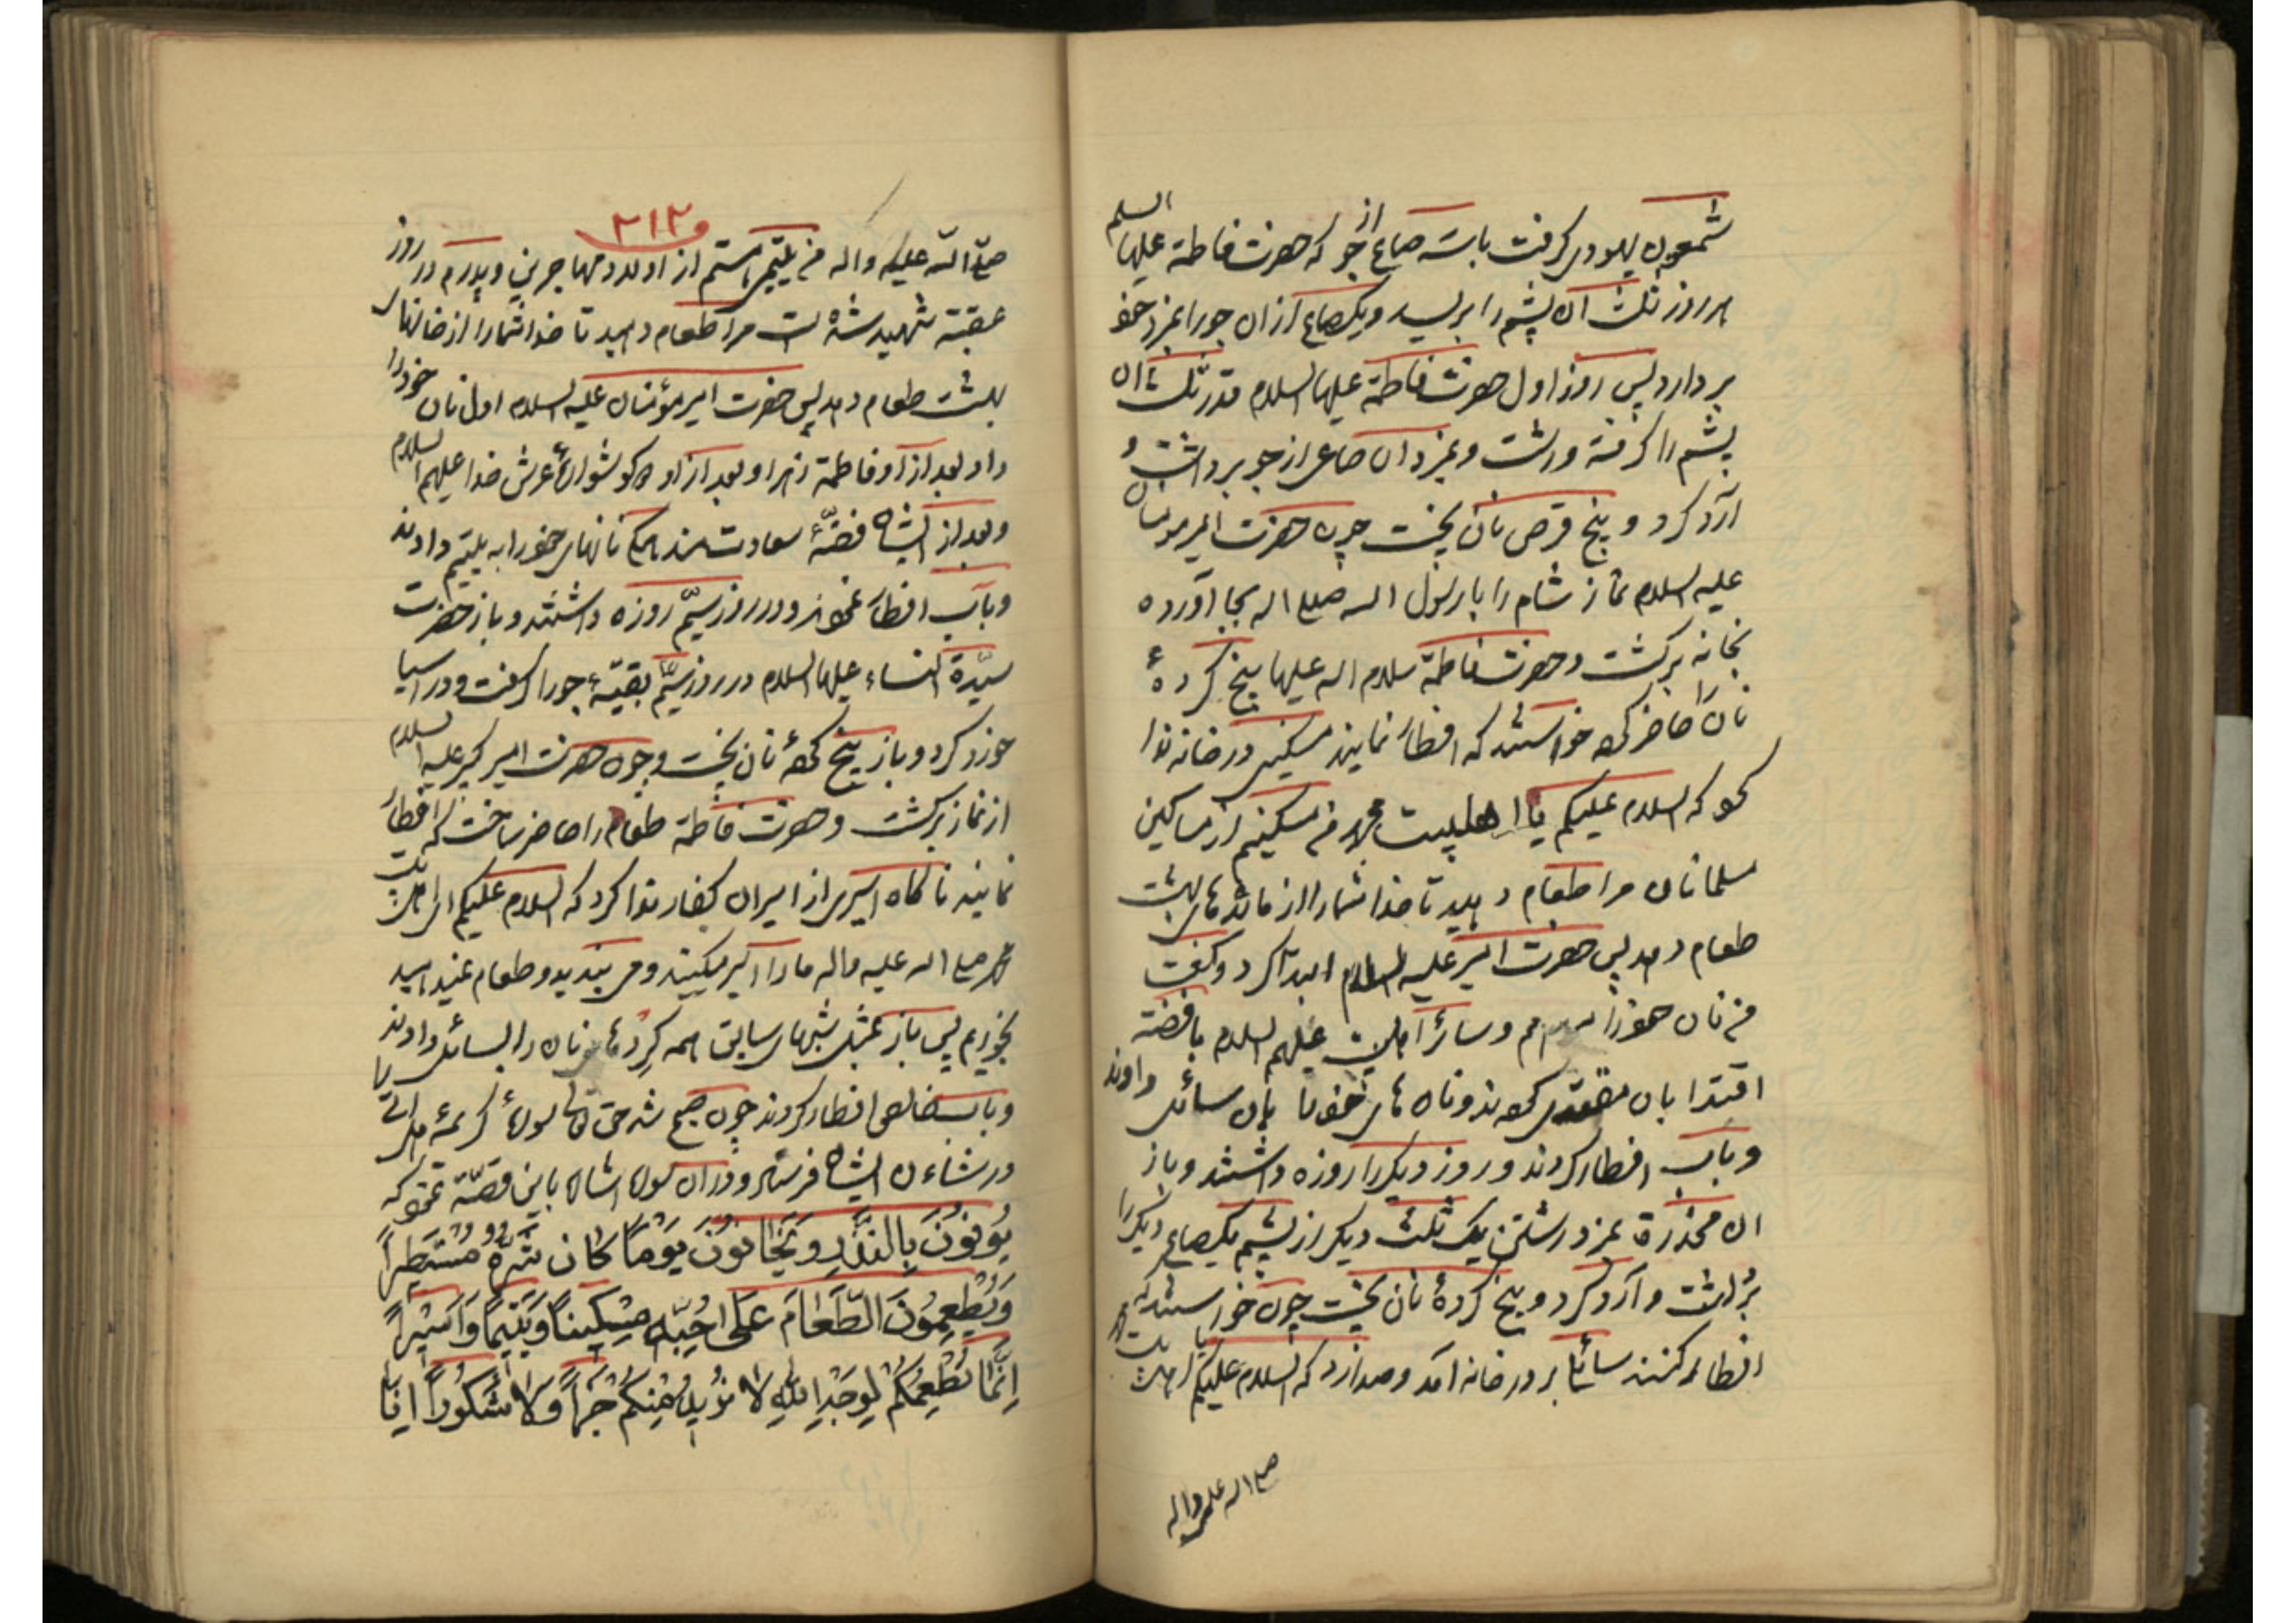 شمعون یهودی گرفت باسه صاع از جو که حضرت فاطمة علیها السلم
هر روز ثلث آن پشم را بریسد و یکصاع از آن جو را بمزد خود
بردارد پس روز اول حضرت فاطمة علیها السلام قدر ثلث آن
پشم را گرفته و رشت و بمزد آن صاعی از جو برداشت و
آرد کرد و پنج قرص نان پخت چون حضرت امیر مومنان
علیه السلام نماز شام را با رسول اله صلی اله بجا آورده
بخانه برگشت و حضرت فاطمة سلام اله علیها پنج کردهٔ
نان را حاضر کرد خواستند که افطار نمایند مسکینی در خانه ندا
کرد که السلام علیکم یا اهلبیت محمد من مسکینم از مساکین
مسلمانان مرا طعام دهید تا خدا شما را از مائدهای بهشت
طعام دهد پس حضرت امیر علیه السلام ابتدا کرد و گفت
من نان خود را میدهم و سائر اهلبیت علیهم السلام بافضة
اقتدا بان مقتدی کردند و نان های خود را بان سائل دادند
و بآب افطار کردند و روز دیگر را روزه داشتند و باز
آن مخدّرة بمزد رشتن یک ثلث دیگر از پشم یکصاع دیگر را
برداشت و آرد کرد و پنج کردهٔ نان پخت چون خواستند که
افطار کنند سائلی بر در خانه آمد و صدا زد که السلام علیکم یا اهلبیت محمد
صلی اله علیه واله
۲۱۲
صلّی الله علیه واله من یتیمی هستم از اولاد مهاجرین و پدرم در روز
عقبة شهید شده است مرا طعام دهید تا خدا شما را از خانهای
بهشت طعام دهد پس حضرت امیر مؤمنان علیه السلام اول نان خود را
داد بعد از او فاطمة زهرا و بعد از او دو گوشوارهٔ عرش خدا علیهم السلام
و بعد از ایشان فضّهٔ سعادتمند همگی نانهای خود را به یتیم دادند
و بآب افطار نمودند و در روز سیّم روزه داشتند و باز حضرت
سیّدة النساء علیها السلام در روز سیّم بقیّهٔ جو را گرفت و در آسیا
خورد کرد و باز پنج کردهٔ نان پخت و چون حضرت امیر کبیر علیه السلام
از نماز برگشت و حضرت فاطمة طعام را حاضر ساخت که افطار
نمایند ناگاه اسیری از اسیران کفار ندا کرد که السلام علیکم ای اهلبیت
محمد صلی اله علیه واله ما را اسیر میکنید و می بندید و طعام نمیدهید
بخوریم پس باز بمثل شبهای سابق همه کردهای نان را بسائل دادند
و بآب خالص افطار کردند چون صبح شد حق تعالی سورهٔ کریمهٔ هل اتی را
در شاءن ایشان فرستاد و در آن سوره اشاره باین قصّة نمود که
یُوفُونَ بِالنَّذْرِ وَیَخَافُونَ یَوْماً کَانَ شَرُّهُ مُسْتَطِیراً
وَیُطْعِمُونَ الطَّعَامَ عَلَی حُبِّهِ مِسْکِیناً وَیَتِیماً وَاَسِیْراً
اِنَّمَا نُطْعِمُکُمْ لِوَجْهِ اللهِ لَا نُرِیدُ مِنْکُمْ جَزَاءً وَلَا شُکُوراً اِنَّا